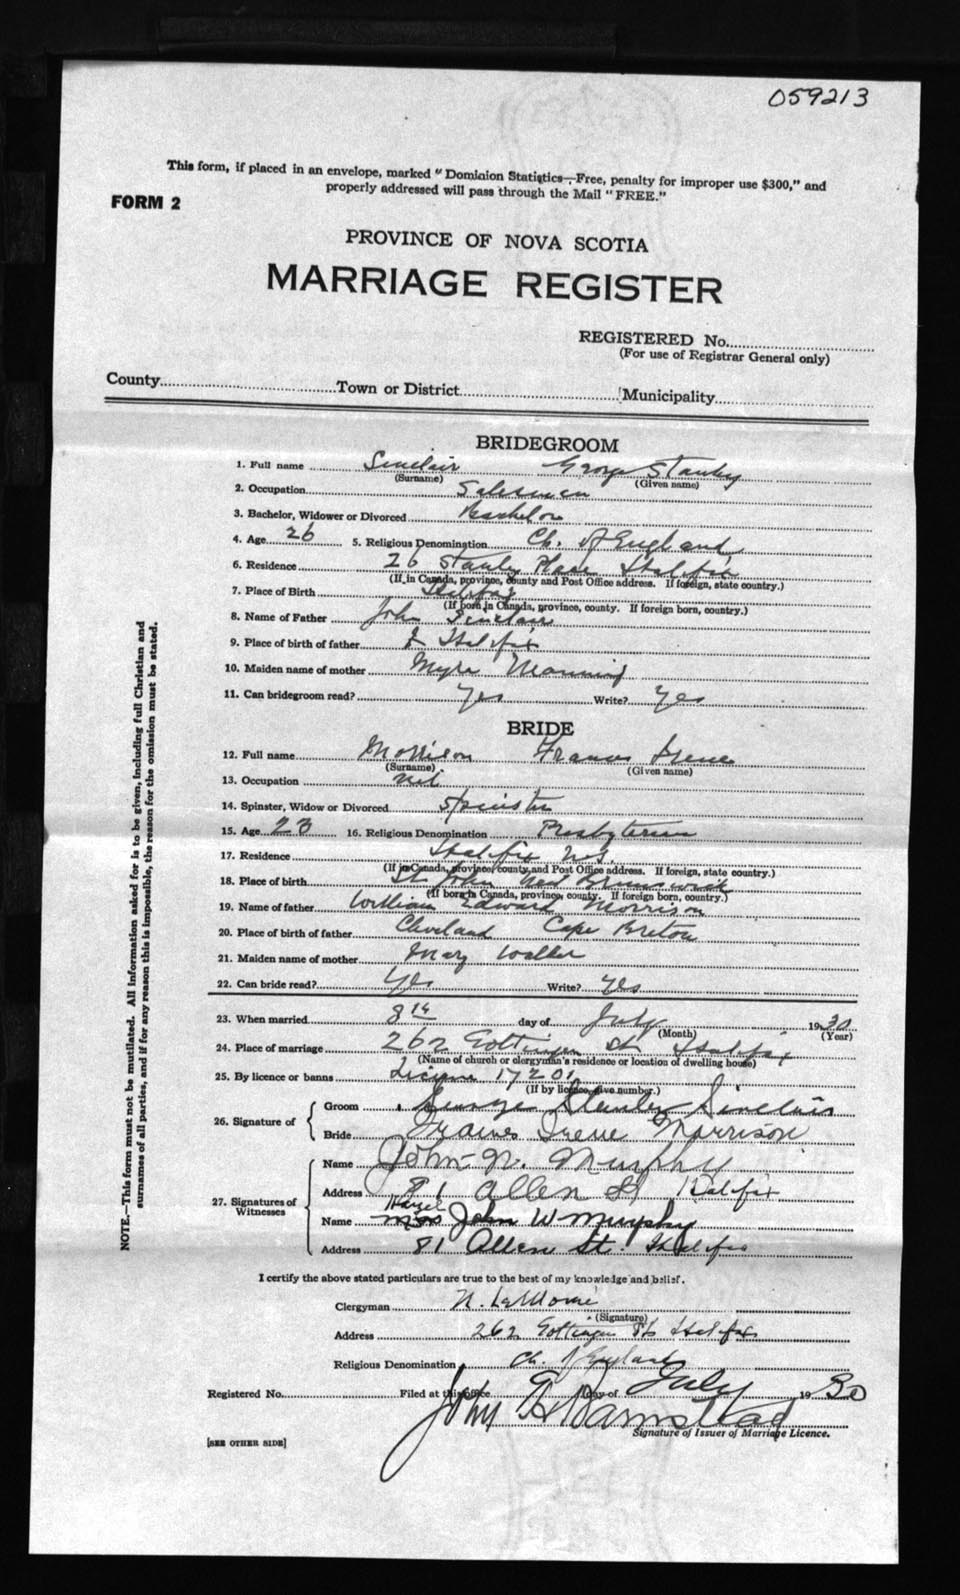 059213
This form, if placed in an envelope, marked "Dominion Statistics—Free, penalty for improper use $300," and
properly addressed will pass through the Mail "FREE."
FORM 2
PROVINCE OF NOVA SCOTIA
MARRIAGE REGISTER
REGISTERED No.
(For use of Registrar General only)
County Town or District Municipality
BRIDEGROOM
1. Full name Sinclair George Stanley
(Surname) (Given name)
2. Occupation Salesman
3. Bachelor, Widower or Divorced Bachelor
4. Age 26 5. Religious Denomination Ch. of England
6. Residence 26 Stanley Place Halifax
(If in Canada, province, county and Post Office address. If foreign, state country.)
7. Place of Birth Halifax
(If born in Canada, province, county. If foreign born, country.)
8. Name of Father John Sinclair
9. Place of birth of father Halifax
10. Maiden name of mother Myra Manning
11. Can bridegroom read? Yes Write? Yes
BRIDE
12. Full name Morrison Frances Irene
(Surname) (Given name)
13. Occupation nil
14. Spinster, Widow or Divorced Spinster
15. Age 23 16. Religious Denomination Presbyterian
17. Residence Halifax N.S.
(If in Canada, province, county, and Post Office address. If foreign, state country.)
18. Place of birth St John New Brunswick
(If born in Canada, province, county. If foreign born, country.)
19. Name of father William Edward Morrison
20. Place of birth of father Cleveland Cape Breton
21. Maiden name of mother Mary Walker
22. Can bride read? Yes Write? Yes
23. When married 8th day of July 1930
(Month) (Year)
24. Place of marriage 262 Gottingen St Halifax
(Name of church or clergyman's residence or location of dwelling house)
25. By licence or banns License 17201
(If by licence, give number.)
26. Signature of Groom George Stanley Sinclair
Bride Frances Irene Morrison
27. Signatures of Witnesses
Name John W. Murphy
Address 81 Allen St Halifax
Hazel
Name Mrs John W Murphy
Address 81 Allen St. Halifax
I certify the above stated particulars are true to the best of my knowledge and belief.
Clergyman N. LeMoine
(Signature)
Address 262 Gottingen St Halifax
Religious Denomination Ch. of England
Registered No. Filed at this office day of July 1930
John Barnstead
Signature of Issuer of Marriage Licence.
[SEE OTHER SIDE]
NOTE.—This form must not be mutilated. All information asked for is to be given, including full Christian and
surnames of all parties, and if for any reason this is impossible, the reason for the omission must be stated.